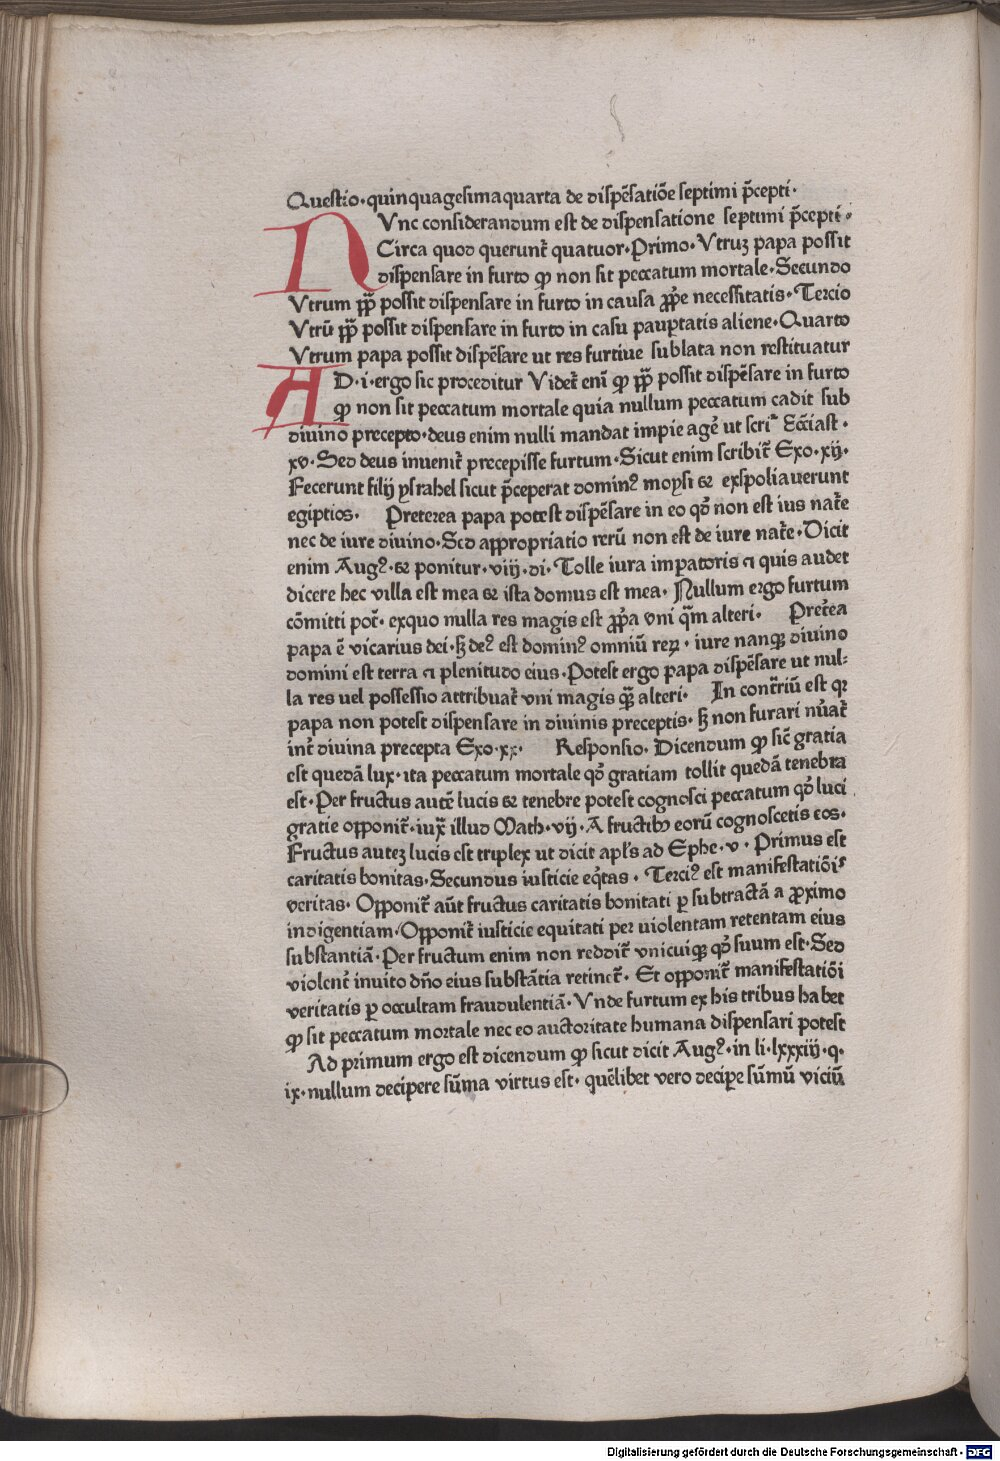 Questio·quinquagesimaquarta de dispēsatiōe septimi p̄cepti·
NVnc considerandum est de dispensatione septimi p̄cepti·
Circa quod querunt̄ quatuor·Primo·Vtruꝫ papa possit
dispensare in furto ꝙ non sit peccatum mortale·Secundo
Vtrum pp̄ possit dispensare in furto in causa ꝓp̄e necessitatis·Tercio
Vtrū pp̄ possit dispensare in furto in casu paupertatis aliene·Quarto
Vtrum papa possit dispēsare ut res furtiue sublata non restituatur
AD·i·ergo sic proceditur Videt̄ enī ꝙ pp̄ possit dispēsare in furto
ꝙ non sit peccatum mortale quia nullum peccatum cadit sub
diuino precepto·deus enim nulli mandat impie agē ut scri⁊ Ecc̄iast·
xv·Sed deus inuenit̄ precepisse furtum·Sicut enim scribit̄ Exo·xij·
Fecerunt filij ysrahel sicut p̄ceperat dominꝰ moysi et exspoliauerunt
egiptios· Preterea papa potest dispēsare in eo qd̄ non est ius nat̄e
nec de iure diuino·Sed appropriatio rerū non est de iure nat̄e·Dicit
enim Augꝰ·et ponitur·viij·di·Tolle iura imꝑatoris ⁊ quis audet
dicere hec villa est mea et ista domus est mea· Nullum ergo furtum
cōmitti pot̄· exquo nulla res magis est ꝓp̄a vni q̄m alteri· Pret̄ea
papa ē vicarius dei·sꝫ deꝰ est dominꝰ omniū reꝝ·iure nanqꝫ diuino
domini est terra ⁊ plenitudo eius·Potest ergo papa dispēsare ut nul⸗
la res uel possessio attribuat̄ vni magis qꝫ̄ alteri· In cont̄riū est qꝛ
papa non potest dispensare in diuinis preceptis·sꝫ non furari nūat̄
int̄ diuina precepta Exo·xx· Responsio·Dicendum ꝙ sic̄ gratia
est quedā lux·ita peccatum mortale qd̄ gratiam tollit quedā tenebra
est·Per fructus autē lucis et tenebre potest cognosci peccatum qd̄ luci
gratie opponit̄·iux̄ illud Math·vij·A fructibꝫ eorū cognoscetis eos·
Fructus auteꝫ lucis est triplex ut dicit apl̄s ad Ephe·v·Primus est
caritatis bonitas·Secundus iusticie eq̄tas·Terciꝰ est manifestatiōis
veritas·Opponit̄ aūt fructus caritatis bonitati ꝑ subtractā a ꝓximo
indigentiam·Opponit̄ iusticie equitati per uiolentam retentam eius
substantiā·Per fructum enim non reddit̄ vnicuiqꝫ qd̄ suum est·Sed
violent̄ inuito dn̄o eius substātia retinet̄·Et opponit̄ manifestatiōi
veritatis ꝑ occultam fraudulentiā·Vnde furtum ex his tribus habet
ꝙ sit peccatum mortale nec eo auctoritate humana dispensari potest
Ad primum ergo est dicendum ꝙ sicut dicit Augꝰ·in li·lxxxiij·q·
ix·nullum decipere sūma virtus est·quēlibet vero deciꝑe sūmū viciū
Digitalisierung gefördert durch die Deutsche Forschungsgemeinschaft · DFG